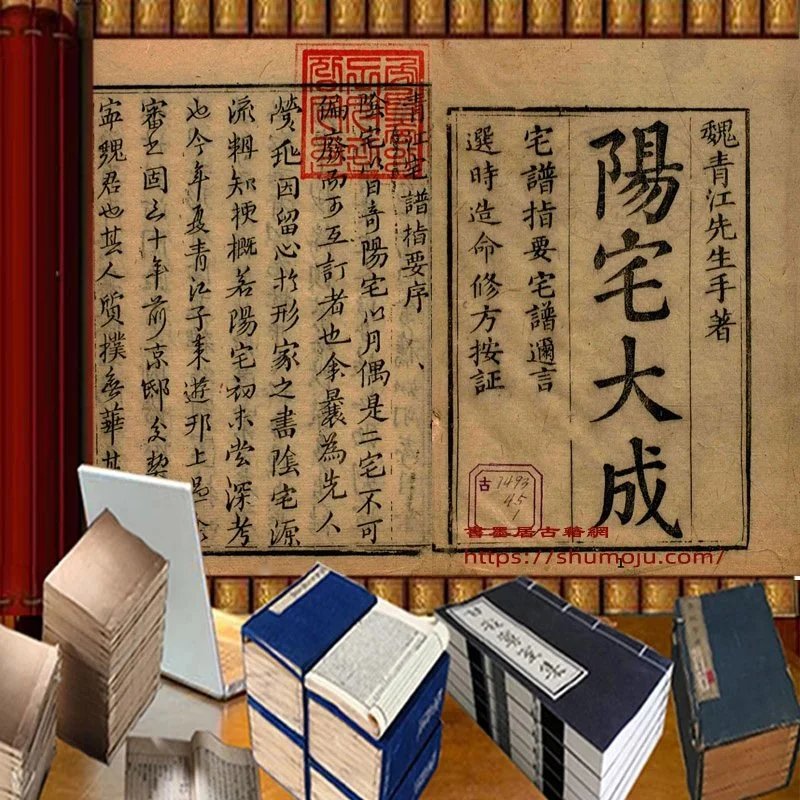 魏青江先生手著
陽宅大成
宅譜指要宅譜邇言
選時造命修方按証
古 1493
45
1
青江宅譜指要序
陰宅以奇陽宅以月偶是二宅不可
偏廢而可互訂者也余曩為先人
營兆因留心於形家之書陰宅源
流輯知梗概若陽宅初未嘗深考
也今年夏青江子来遊邗上
審之固三十年前京邸
魏君也其人質撲無華其
書墨居古籍網
https://shumoju.com/
1